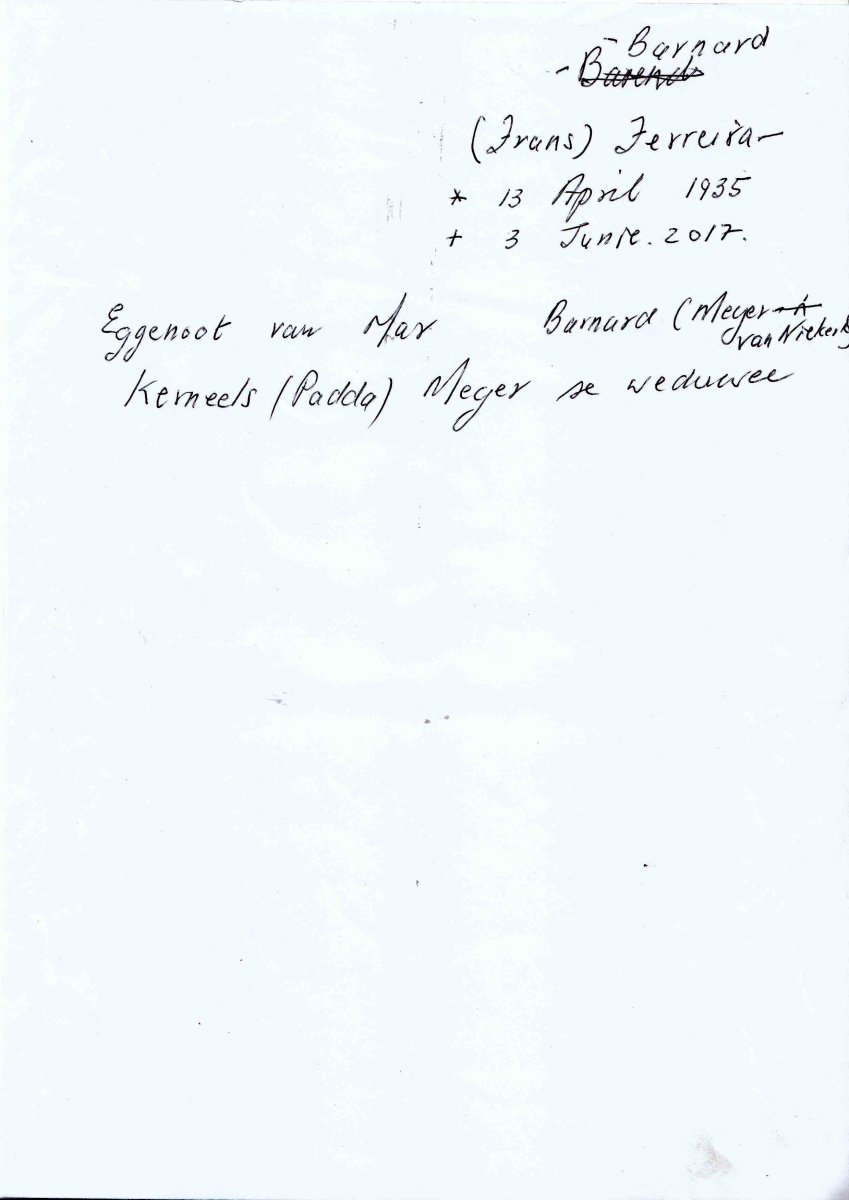 - Barnard
- Barend
(Frans) Ferreira -
* 13 April 1935
+ 3 Junie. 2017.
Eggenoot van Mar Barnard (Meyer
van Niekerk)
Kerneels (Padda) Meyer se weduwee